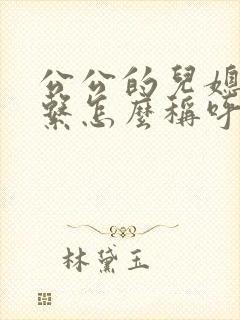 公公的兒媳
繫怎麼稱呼
林黛玉